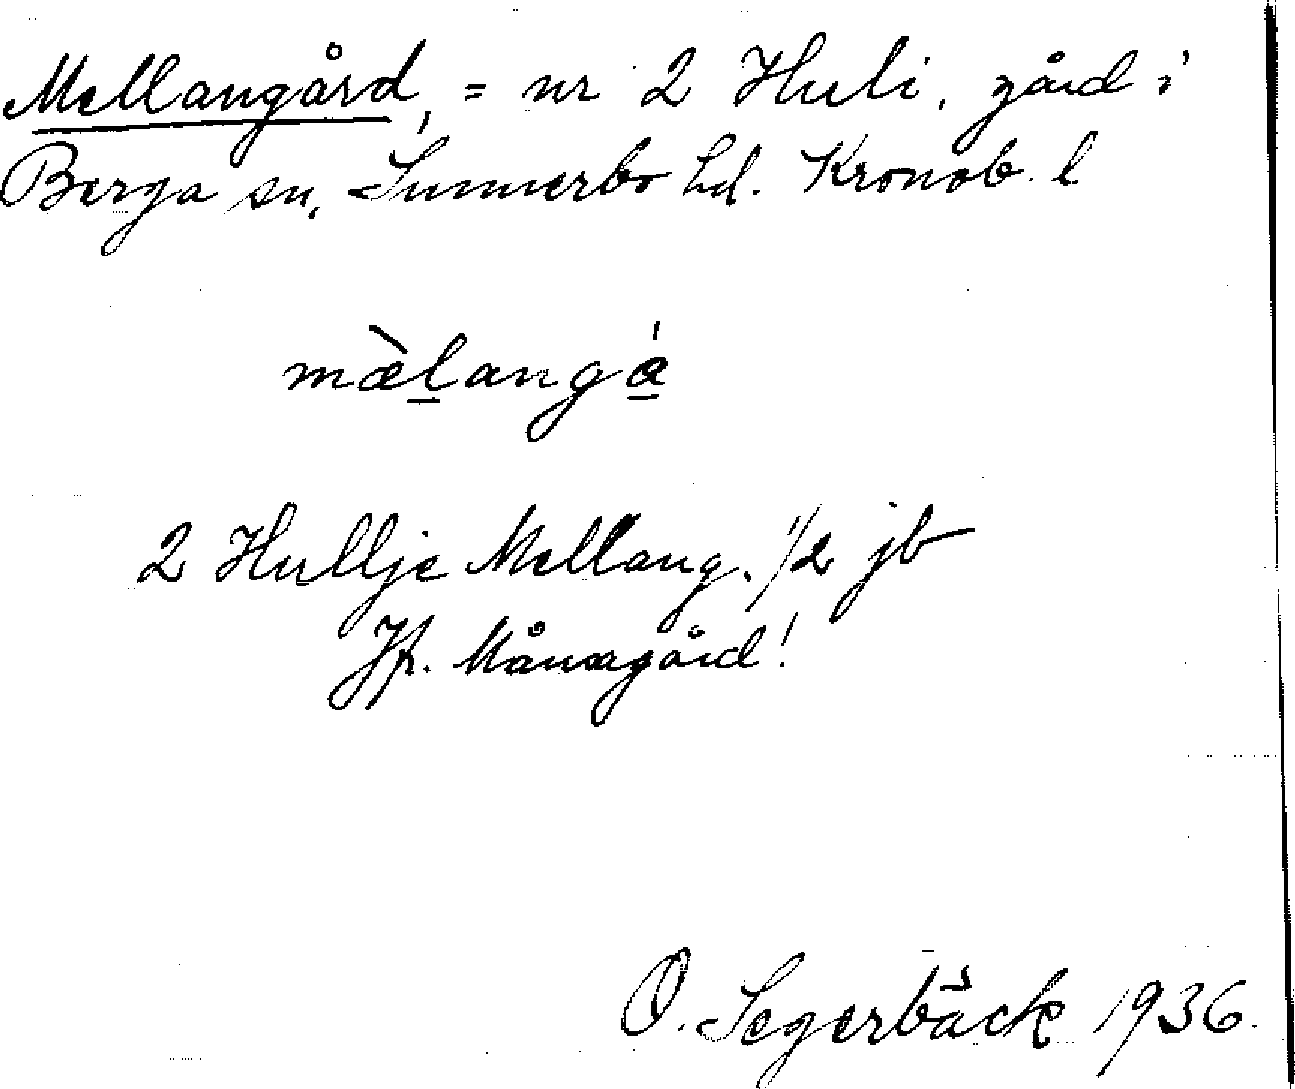 Mellangård, = nr 2 Huli, gård i
Berga sn, Sunnerbo hd. Kronob. l
mæ̀langá
2 Hullje Mellang. 1/2 jb
Jfr. Månsagård!
O. Segerbäck 1936.